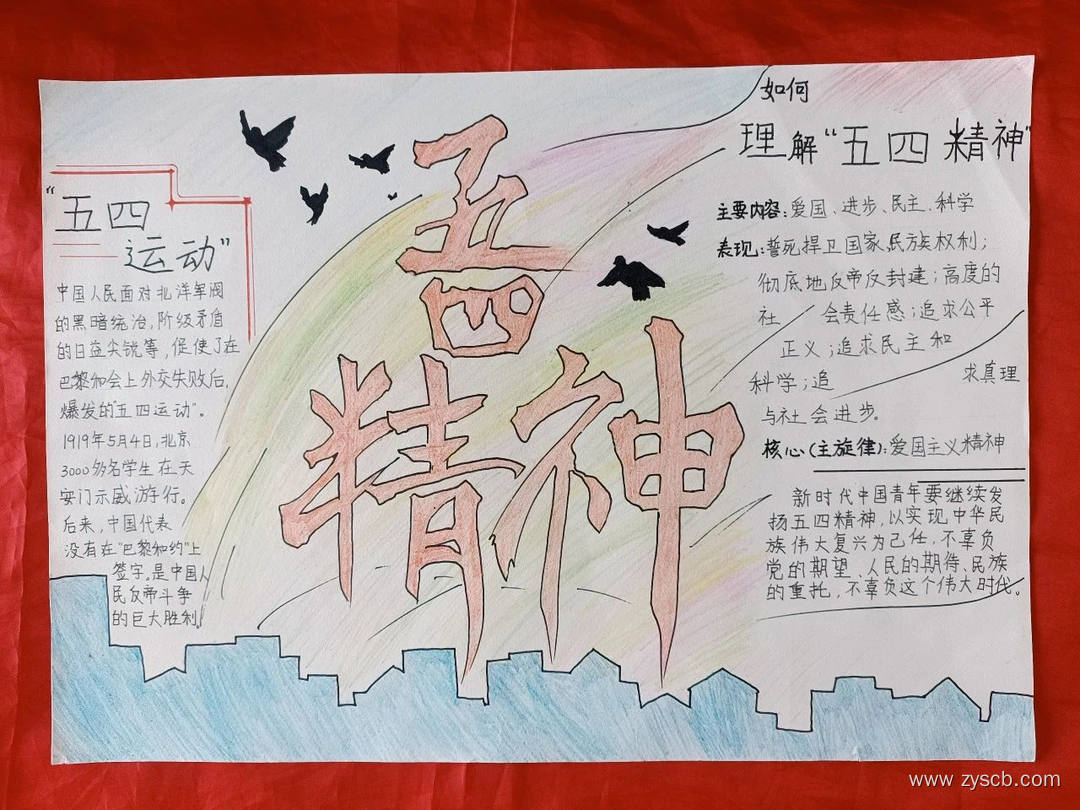 “五四
运动”
中国人民面对北洋军阀
的黑暗统治,阶级矛盾
的日益尖锐等,促使了在
巴黎和会上外交失败后,
爆发的“五四运动”。
1919年5月4日,北京
3000多名学生在天
安门示威游行。
后来,中国代表
没有在“巴黎和约”上
签字。是中国人
民反帝斗争
的巨大胜利。
五
四
精神
如何
理解“五四精神”
主要内容:爱国、进步、民主、科学
表现:誓死捍卫国家民族权利;
彻底地反帝反封建;高度的
社会责任感;追求公平
正义;追求民主和
科学;追求真理
与社会进步。
核心(主旋律):爱国主义精神
新时代中国青年要继续发
扬五四精神,以实现中华民
族伟大复兴为己任,不辜负
党的期望、人民的期待、民族
的重托,不辜负这个伟大时代。
www.zyscb.com